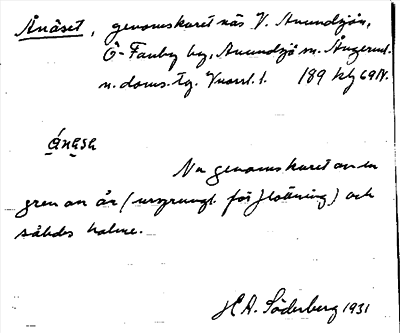 Ånäset, genomskuret näs V. Anundsjön,
Ö-Fanby by, Anundsjö sn. Ångerml.
n. doms. tg. Vuorrl. 1. 189 kbf 69 N.
ánäsa
Nu genomskuret av en
gren av ån (ursprungl. för flottning) och
således holme.
H.A. Söderberg 1931